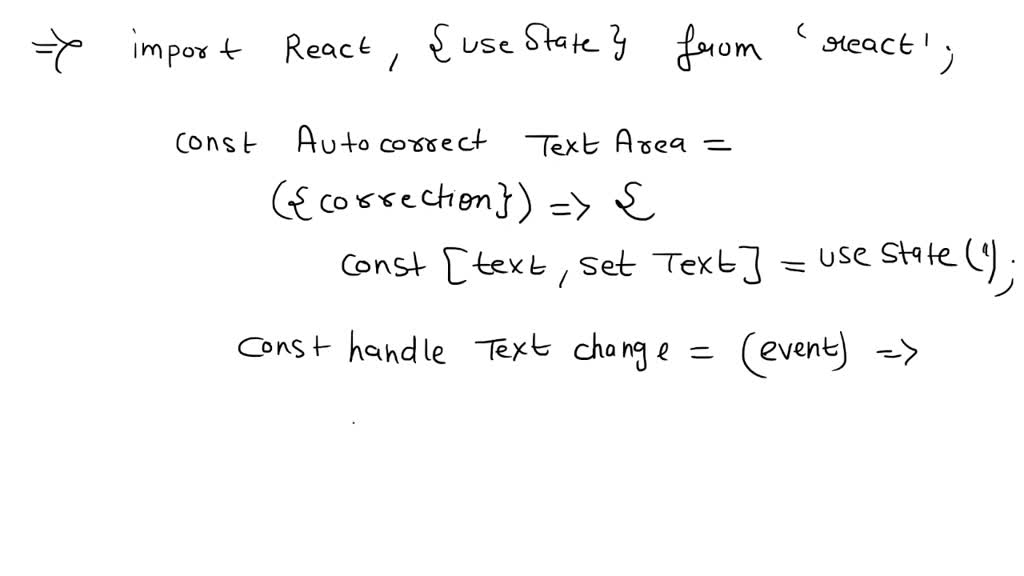 => import React, {useState} from 'react';
const Autocorrect Text Area =
({correction}) => {
const [text, set Text] = use State('');
const handle Text change = (event) =>